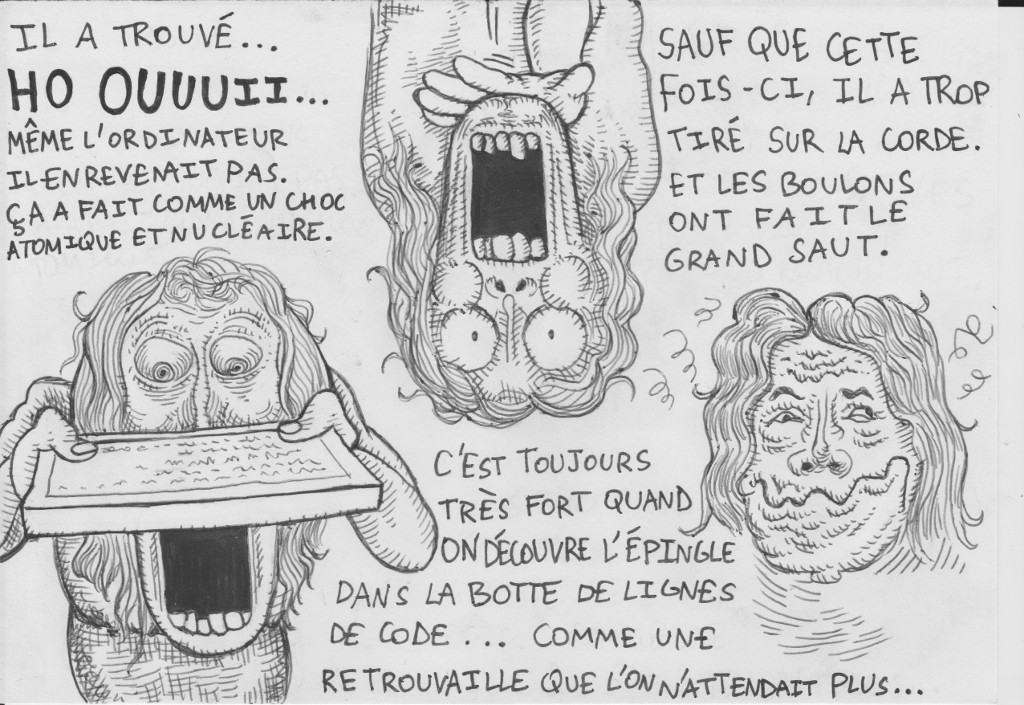 IL A TROUVÉ...
HO OUUUII...
MÊME L'ORDINATEUR
IL EN REVENAIT PAS.
ÇA A FAIT COMME UN CHOC
ATOMIQUE ET NUCLÉAIRE.
SAUF QUE CETTE
FOIS-CI, IL A TROP
TIRÉ SUR LA CORDE.
ET LES BOULONS
ONT FAIT LE
GRAND SAUT.
C'EST TOUJOURS
TRÈS FORT QUAND
ON DÉCOUVRE L'ÉPINGLE
DANS LA BOTTE DE LIGNES
DE CODE... COMME UNE
RETROUVAILLE QUE L'ON N'ATTENDAIT PLUS...